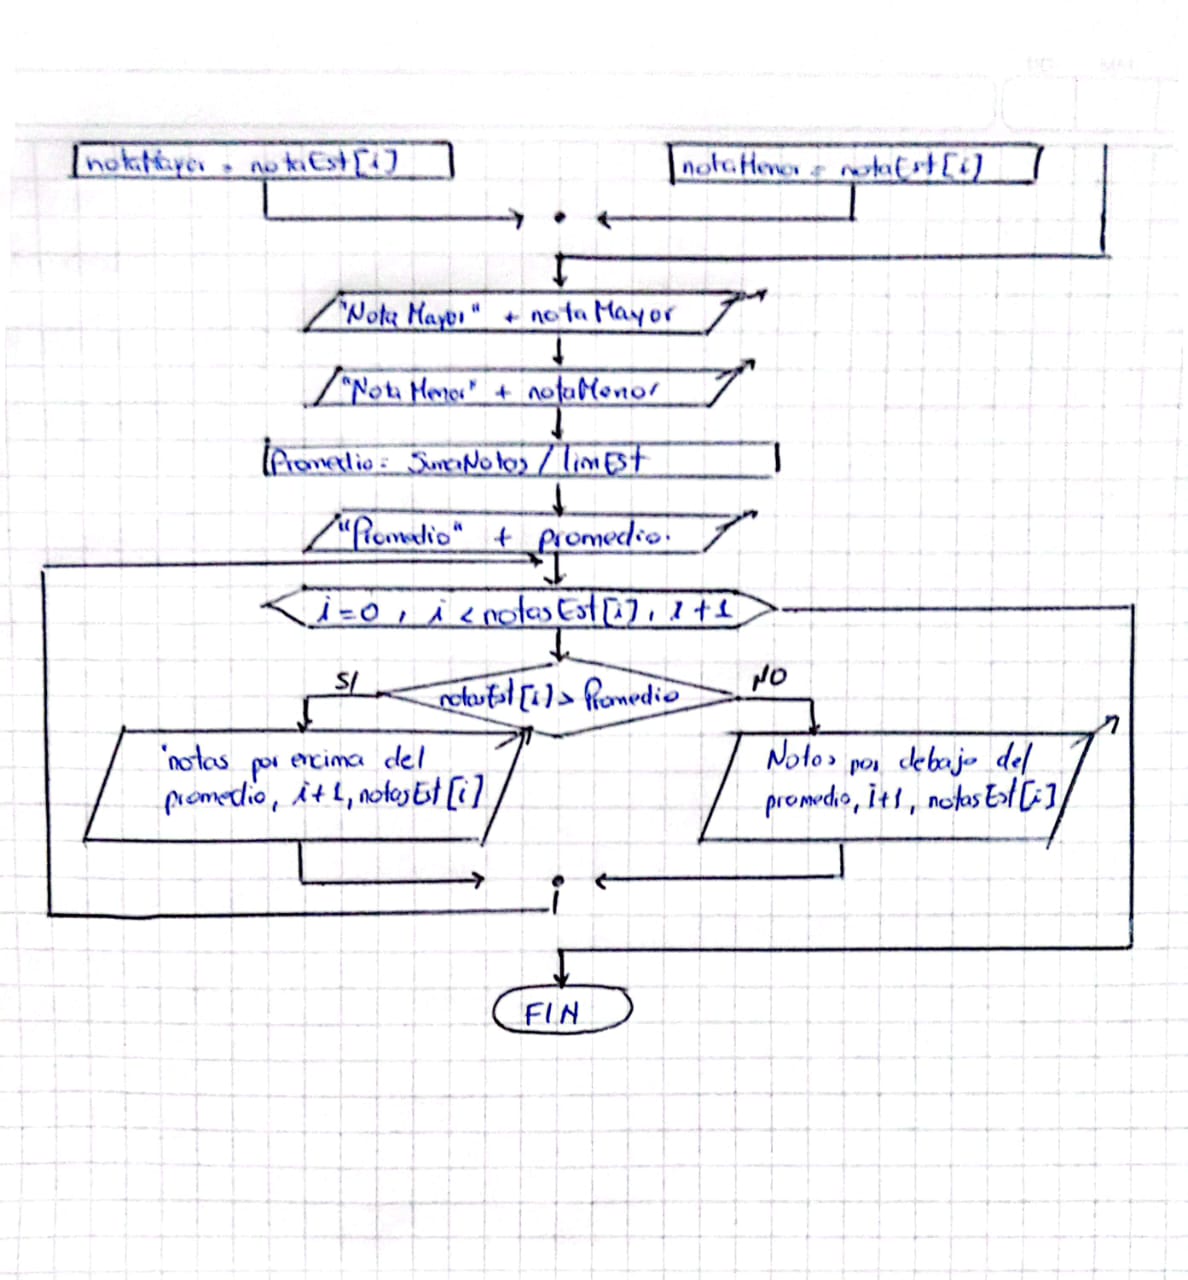 notaMayor = notaEst[i]
notaMenor = notaEst[i]
"Nota Mayor" + notaMayor
"Nota Menor" + notaMenor
Promedio = SumaNotas / limEst
"Promedio" + promedio.
i=0, i < notasEst[i], i+1
notasEst[i] > Promedio
SI
NO
"notas por encima del
promedio, i+1, notasEst[i]
Notas por debajo del
promedio, i+1, notasEst[i]
FIN